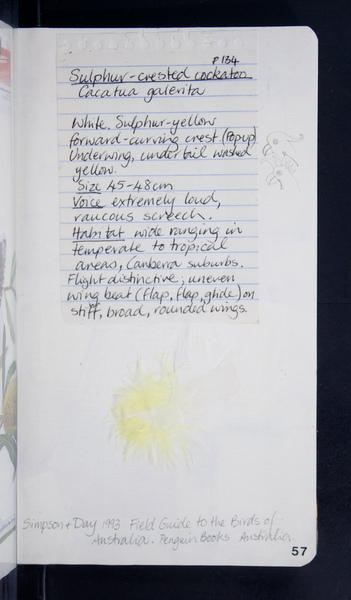 P134
Sulphur-crested cockatoo
Cacatua galerita
White. Sulphur-yellow
forward-curving crest (Popup)
Underwing, under tail washed
yellow.
Size 45-48cm
Voice extremely loud,
raucous screech.
Habitat wide ranging in
temperate to tropical
areas, Canberra suburbs.
Flight distinctive; uneven
wing beat (flap, flap, glide) on
stiff, broad, rounded wings.
Simpson + Day 1993 Field Guide to the Birds of
Australia. Penguin Books Australia.
57